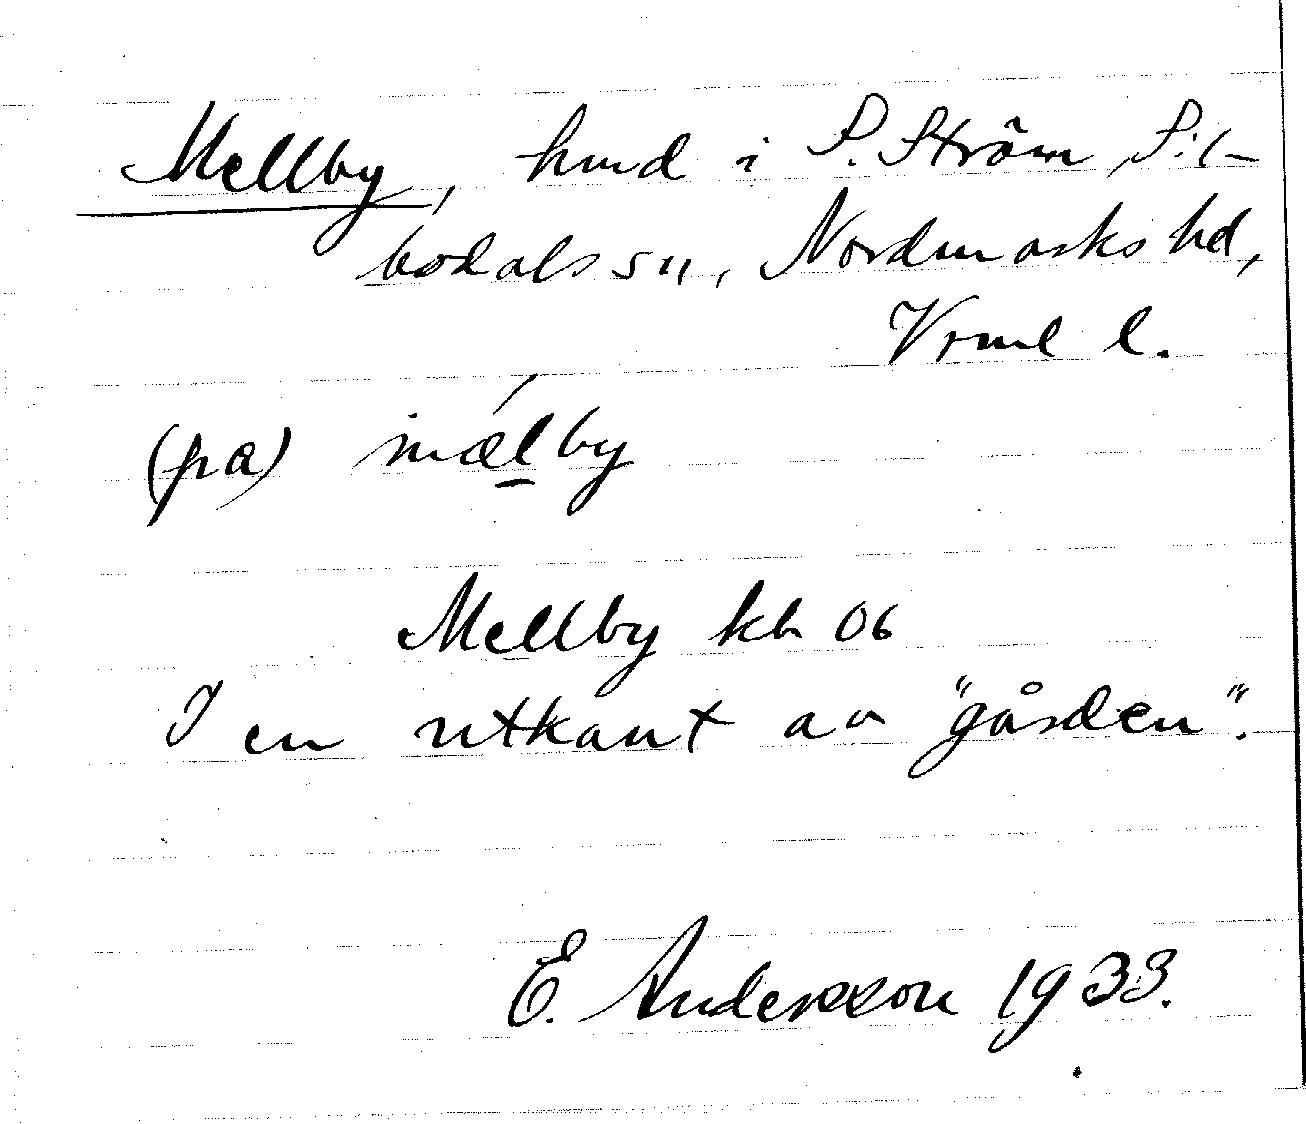 Mellby, hmd i S. Ström, Sil-
bodals sn, Nordmarks hd,
Vrml l.
(pa) mǽlby
Mellby kb 06
I en utkant av "gården".
E. Andersson 1933.